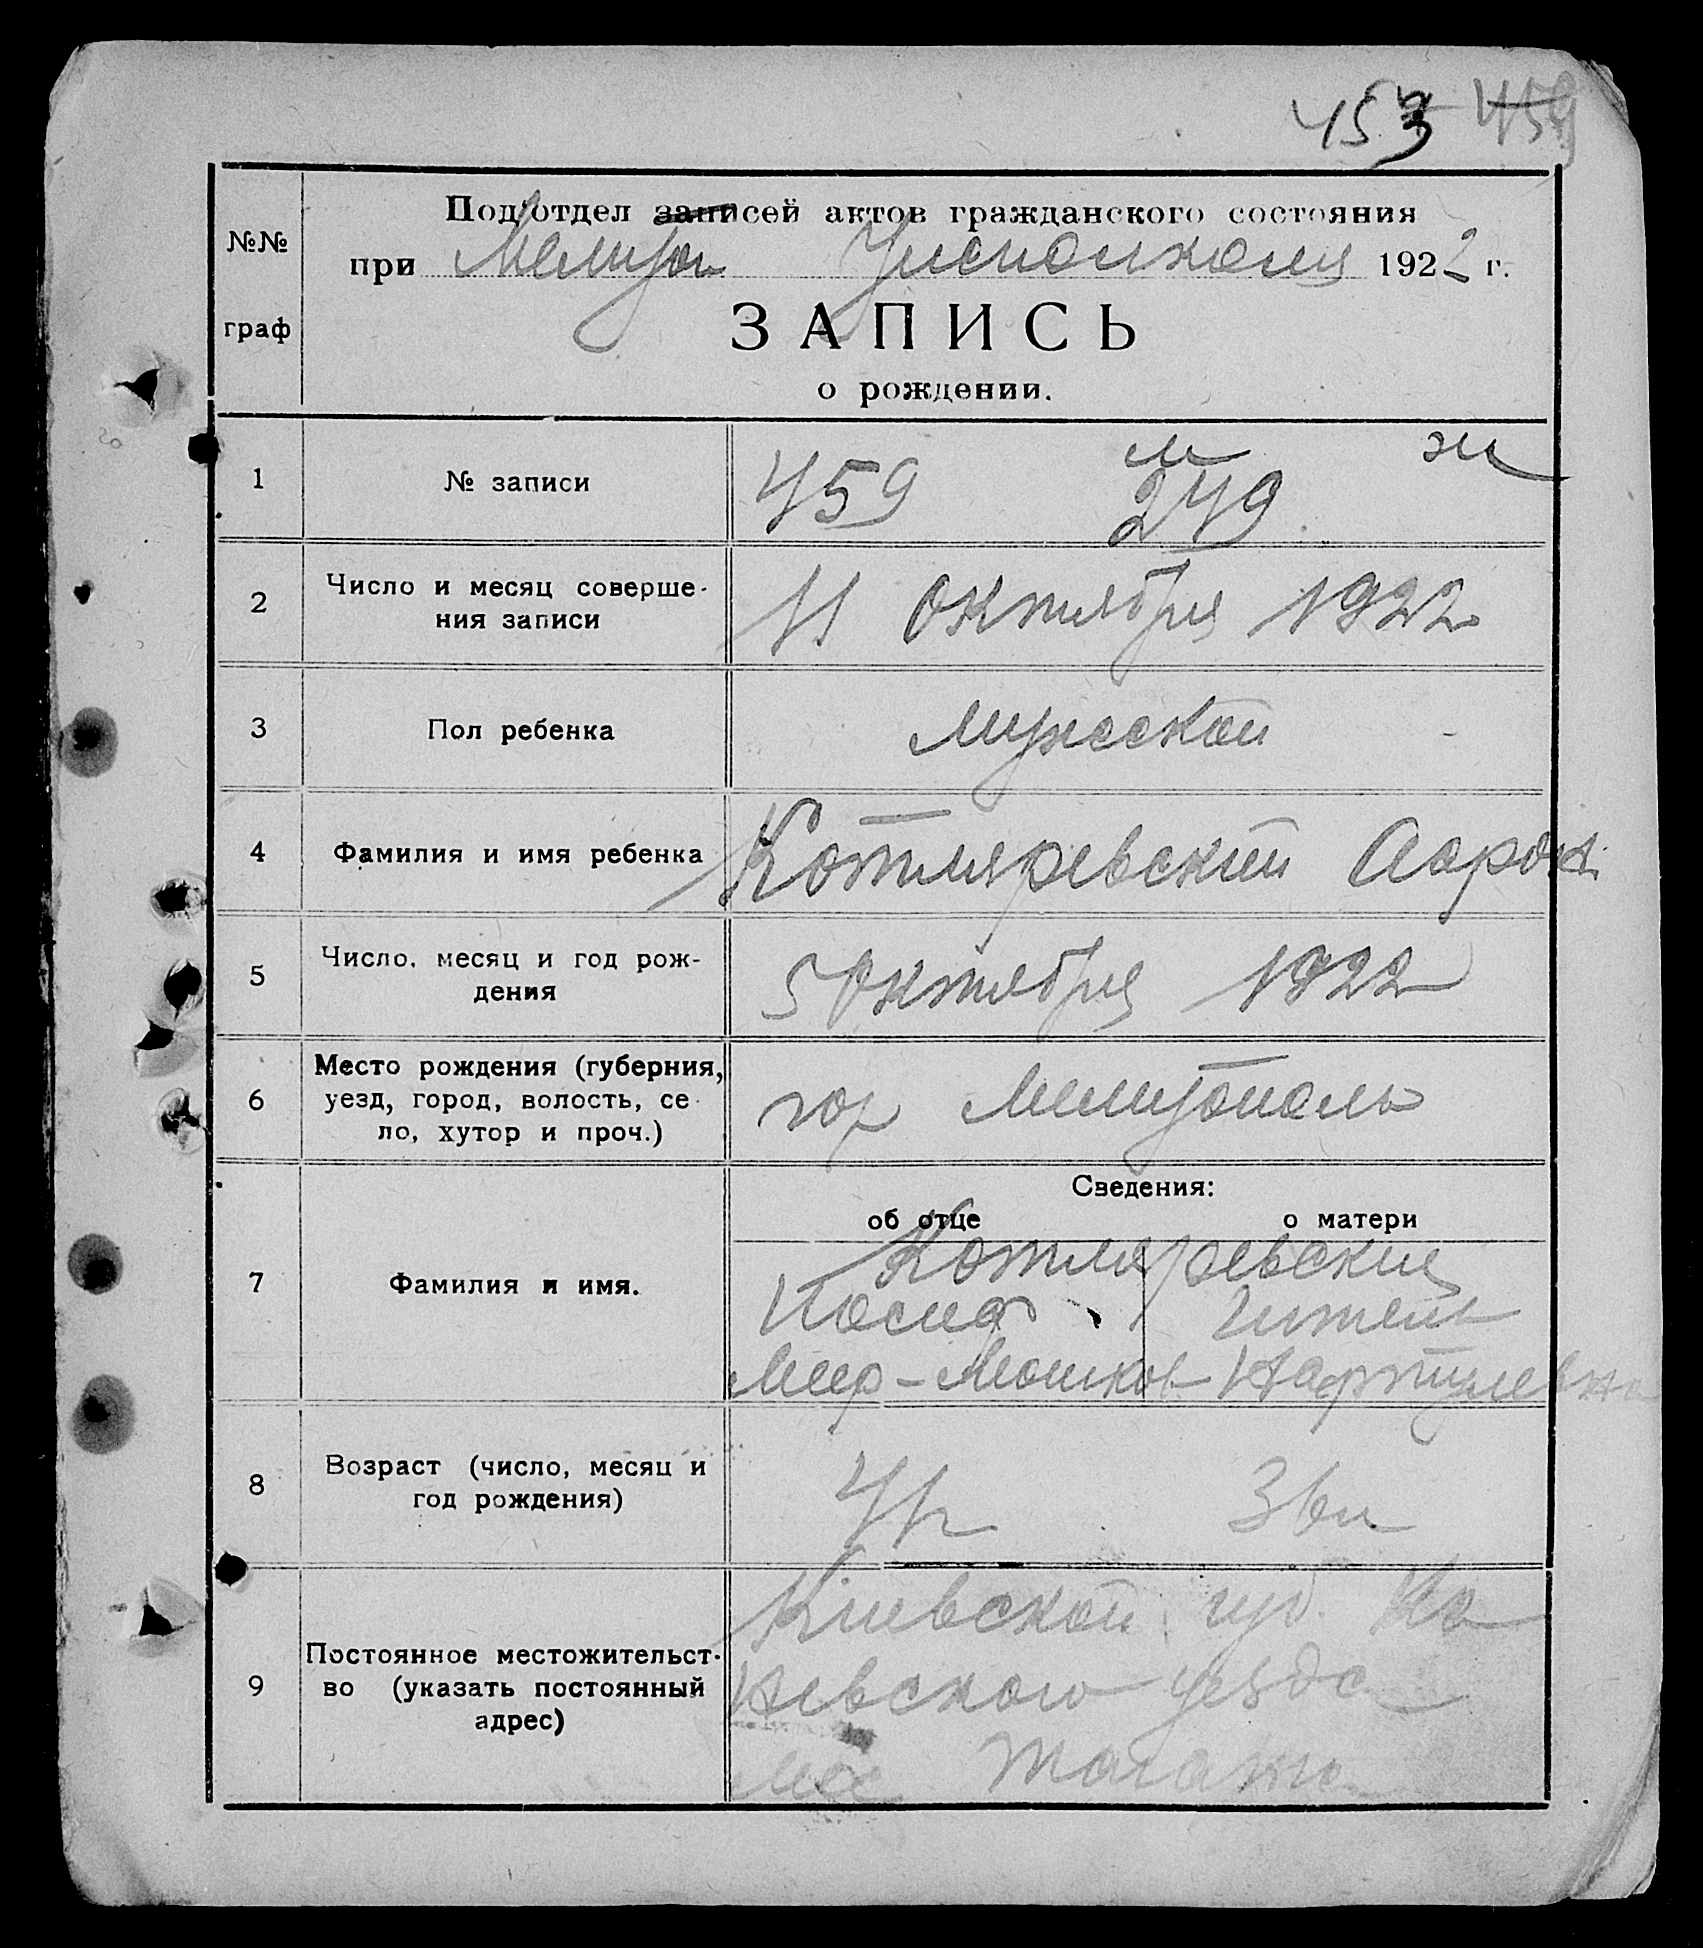 453 459
№№
граф
Подотдел записей актов гражданского состояния
при Мелитоп Уисполкома 1922 г.
ЗАПИСЬ
о рождении.
м ж
1 № записи 459 249
2 Число и месяц соверше-
ния записи 11 Октября 1922
3 Пол ребенка мужской
4 Фамилия и имя ребенка Котляревский Аарон
5 Число, месяц и год рож-
дения 5 Октября 1922
6 Место рождения (губерния,
уезд, город, волость, се
ло, хутор и проч.) гор Мелитополь
Сведения:
об отце о матери
7 Фамилия и имя. Котляревские
Иосиф Гитель
Меер-Мошков Нафтулевна
8 Возраст (число, месяц и
год рождения) 36
9 Постоянное местожительст-
во (указать постоянный
адрес)
Киевской губ. Ка
невского уезда